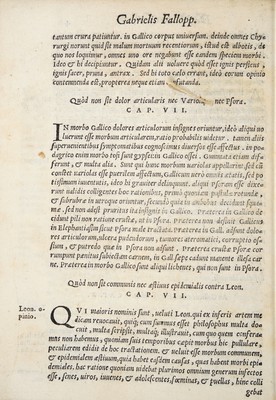 Gabrielis Fallopp.
tantum crura patiuntur. in Gallico corpus universum. deinde omnes Chy-
rurgi norunt quid sit malum mortuum recentiorum, istud est albotis, de
quo nos loquimur, omnes uno ore negabunt esse eandem speciem morbi.
Ideo & hi decipiuntur. Quidam alii voluere quòd esset ignis persicus,
ignis sacer, pruna, antrax. Sed hi toto cælo errant, ideò eorum opinio
contemnenda est, propterea neque etiam
Quòd non sit dolor articularis nec Variolæ, nec Psora.
CAP. VII.
IN morbo Gallico dolores articulorum insignes oriuntur, ideo aliqui vo
luerunt esse morbum articularem, ratio probabilis videtur. tamen aliis
supervenientibus symptomatibus cognoscimus diversos esse affectus. in po-
dagrico enim morbo tophi sunt gypsei in Gallico ossei. Gummata etiam dif-
ferunt, & multa alia. Sunt qui hunc morbum variolas appellarint. sed cū
constet variolas esse puerilem affectum, Gallicum verò omnis ætatis, sed po
tissimum iuventutis, ideo hi graviter delinquunt. aliqui Psoram esse dixere
runt validis colligentes hac rationibus, primò quoniam pustulæ rotundæ,
& subrubræ in utroque oriuntur, secundò quia in ambobus decidunt squa-
mæ. sed non adest pruritus ita insignis in Gallico. Præterea in Gallico de
cidunt pili non ratione ætatis, at in Psora non. Præterea differt Gallicus
in Elephantiasin sicut Psora male tractata. Præterea in Gall. adsunt dolo-
res articulorum, ulcera pudendorum, tumores aeromatici, corruptio os-
sium, & putredo quæ in Psora non adsunt. Præterea cruralia Psoræ cor
rumpunt penitus subiectam carnem, in Gall. sæpe cadunt manente illæsa car
ne. Præterea in morbo Gallico sunt aliqui lichenes, qui non sunt in Psora.
Quòd non sit communis nec affectus epidemialis contra Leon.
CAP. VII.
Leon. o-
pinio.
QUI maioris nominis sunt, veluti Leon. qui ex inferis artem me
dicam revocavit, quiq; cum summus esset philosophus multa do-
cuit, multa scripsit, multaq; illustravit, cum quo quem conferamus
non habemus, quoniam suis temporibus cepit morbus hic pullulare,
peculiarem edidit de hoc tractationem. & voluit esse morbum communem,
& epidemialem affectum, quia habet easdem causas, quas habent morbi epi-
demiales. hac ratione quoniam videbat plurimos omnium generum infectos
esse, senes, viros, iuvenes, & adolescentes, fœminas, & puellas, hinc colli
gebat